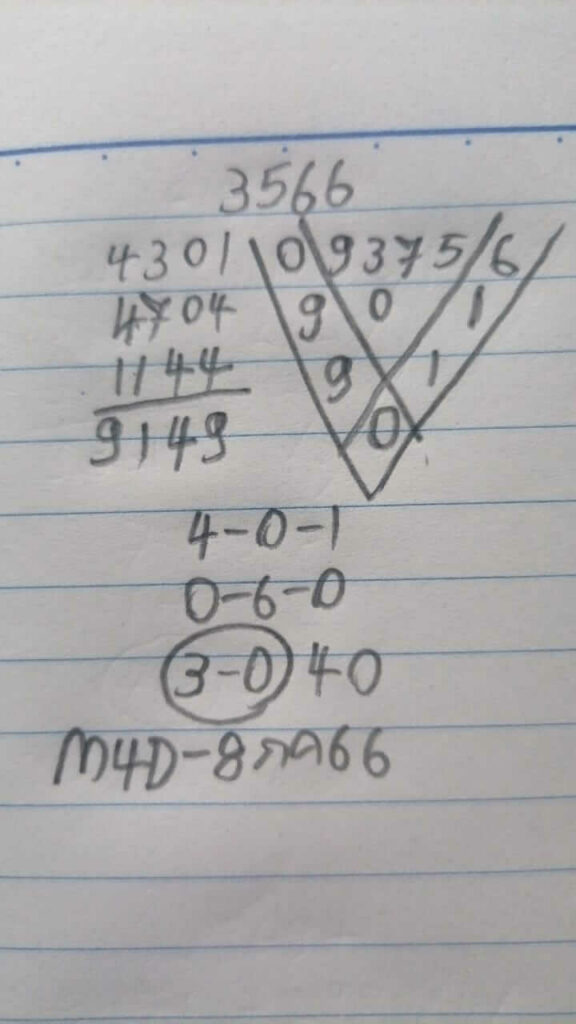 3566
4301 0 9375 6
4704 9 0 1
1144 9 1
9149 0
4-0-1
0-6-0
3-0 40
M4D-8